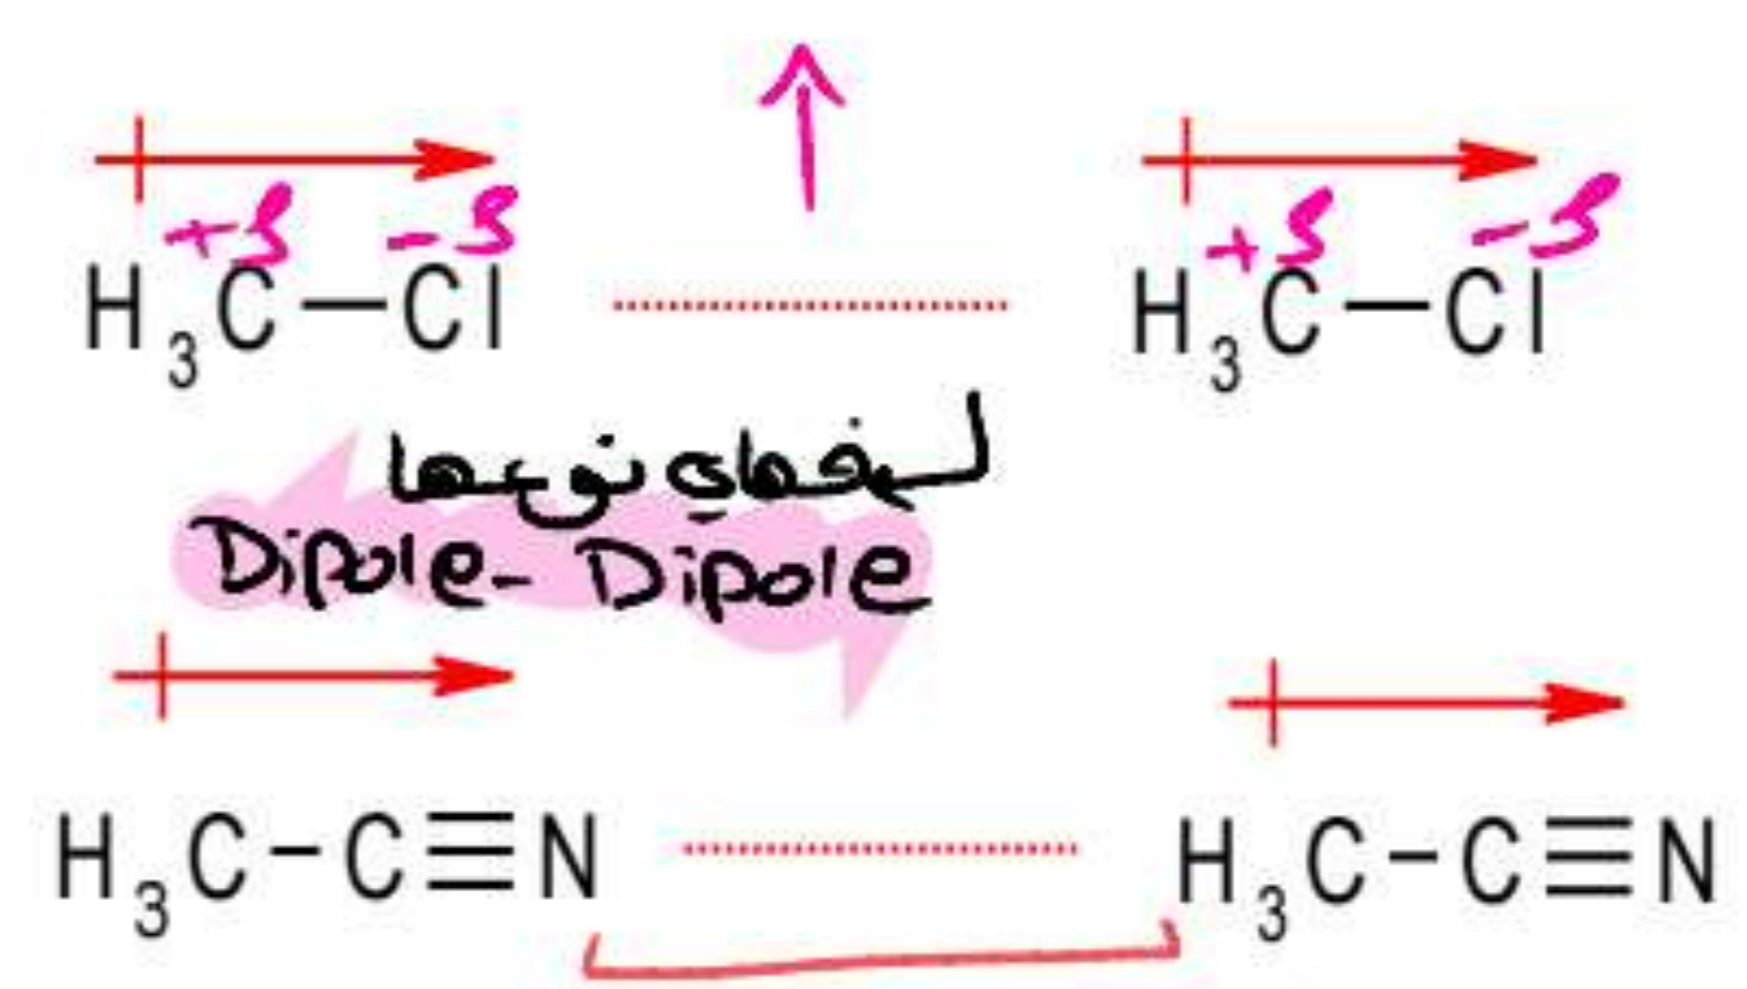 +δ -δ +δ -δ
H₃C—Cl ........ H₃C—Cl
فهاي نوعها
Dipole-Dipole
H₃C-C≡N ........ H₃C-C≡N